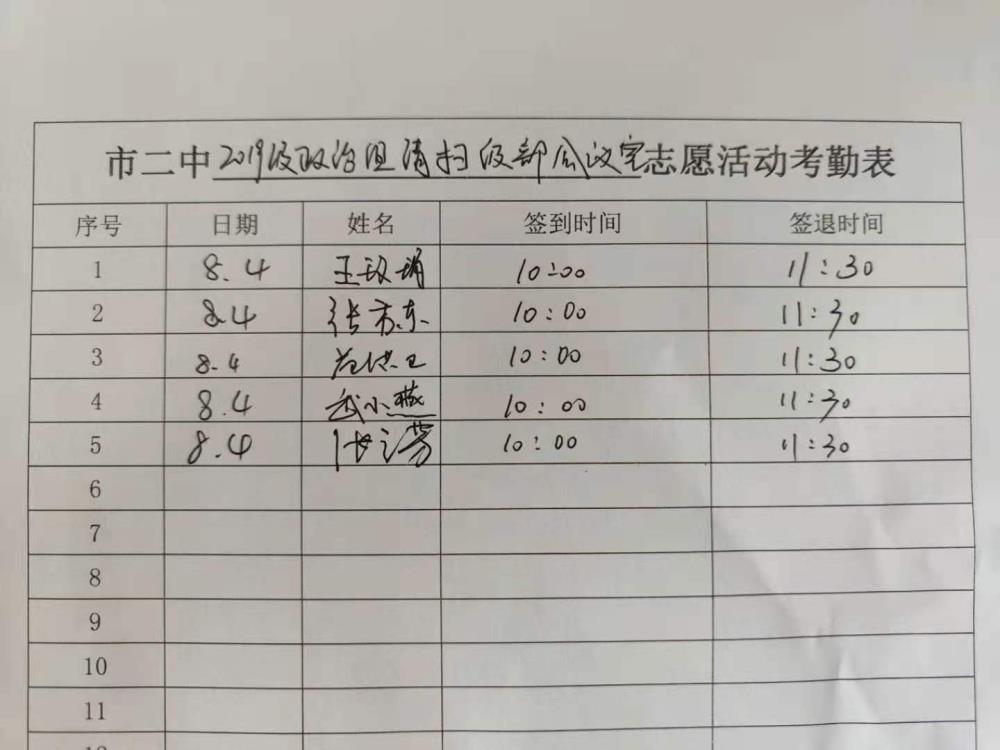 市二中2019级政治组清扫级部会议室志愿活动考勤表
序号 日期 姓名 签到时间 签退时间
1 8.4 王 10:00 11:30
2 8.4 张东 10:00 11:30
3 8.4 10:00 11:30
4 8.4 武小燕 10:00 11:30
5 8.4 张芳 10:00 11:30
6
7
8
9
10
11